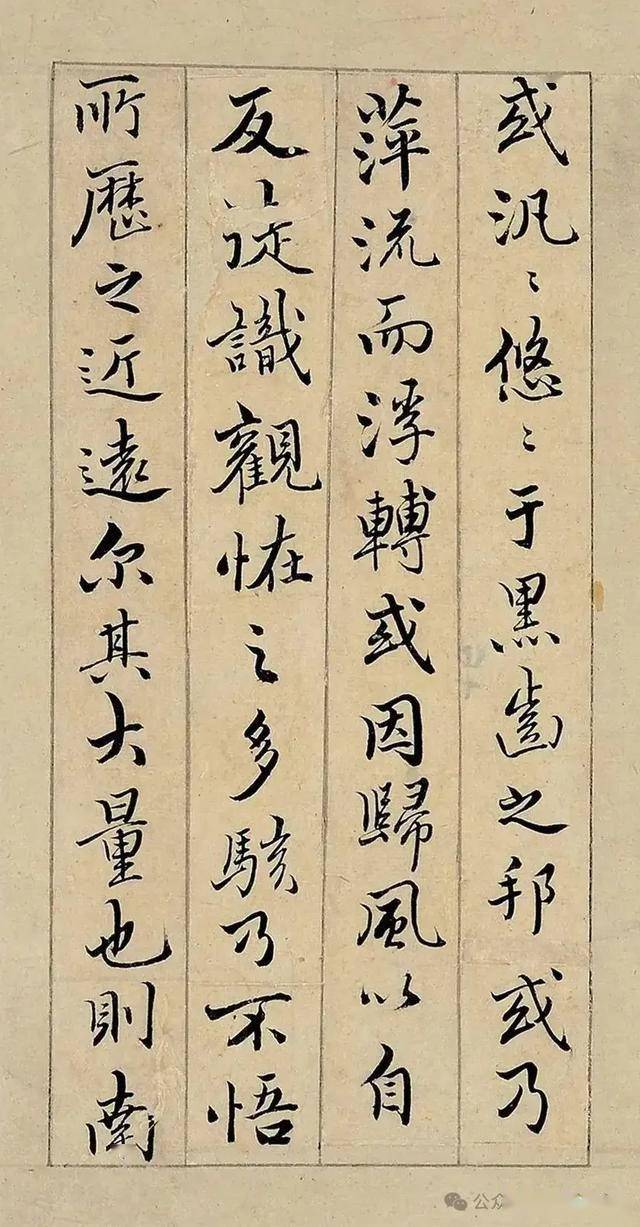 或汎〻悠〻于黑齒之邦或乃
萍流而浮轉或因歸風以自
反徒識觀怪之多駭乃不悟
所歷之近遠尓其大量也則南
公众